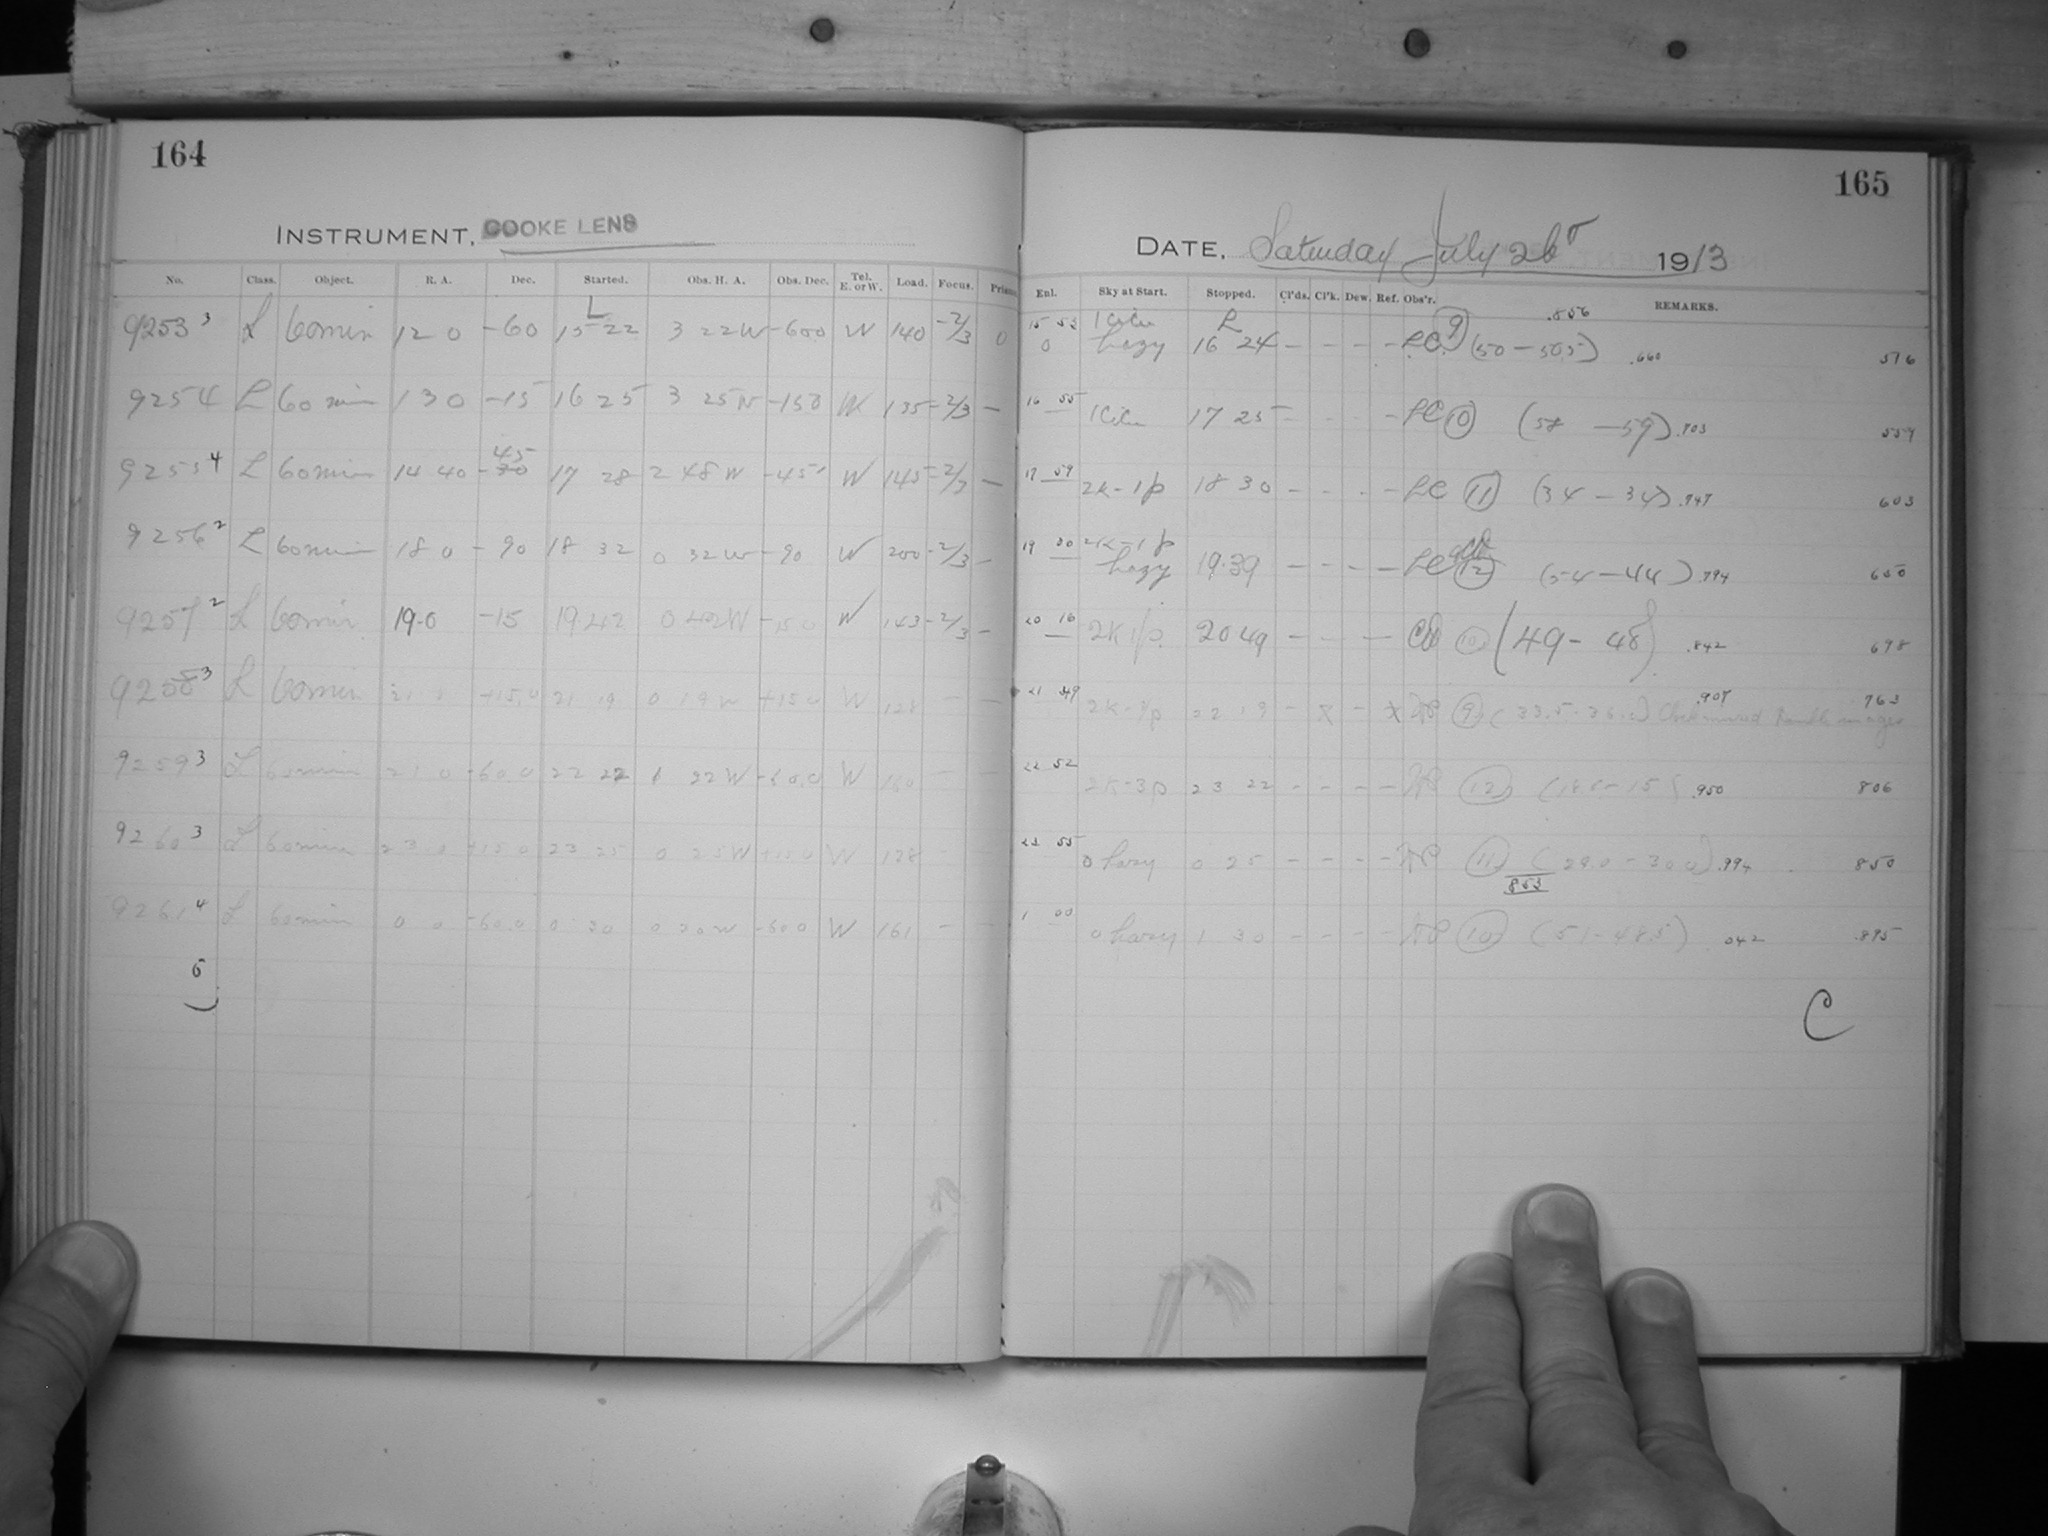 164
INSTRUMENT, COOKE LENS
No. Class. Object. R. A. Dec. Started. Obs. H. A. Obs. Dec. Tel. E. or W. Load. Focus. Prism.
L
9253 3 L 60 min 12 0 -60 15 22 3 22 W -600 W 140 -2/3 0
9254 L 60 min 13 0 -15 16 25 3 25 W -150 W 135 -2/3 —
9255 4 L 60 min 14 40 -30 45 17 28 2 48 W -45 W 145 -2/3 —
9256 2 L 60 min 18 0 -90 18 32 0 32 W -90 W 200 -2/3 —
9257 2 L 60 min 19.0 -15 19 42 0 42 W -15 0 W 143 -2/3 —
9258 3 L 60 min 21 +15.0 21 19 0 19 W +15 0 W 128 — —
9259 3 L 60 min 21 0 -60 0 22 22 22 W -60.0 W 160 — —
9260 3 L 60 min 23 0 +15 0 23 25 0 25 W +15 0 W 128 — —
9261 4 L 60 min 0 0 -60.0 0 30 0 30 W -60 0 W 161 — —
165
DATE, Saturday July 26 1913
Enl. Sky at Start. Stopped. Cl'ds. Cl'k. Dew. Ref. Obs'r. REMARKS.
15 53 0 hazy L 16 24 - - - - LC 9 (50 - 50.5) .856 .660 516
16 55 17 25 - - - - LC 10 (58 - 59) .703 559
17 59 2K-1p 18 30 - - - - LC 11 (34 - 34) .747 603
19 20 2K-1p hazy 19.39 - - - - LC 12 (54 - 44) .794 650
20 16 2K 1p 20 49 - - - - 10 (49 - 48) .842 698
21 49 22 19 - X - X 9 (33.5 - 36.0) images .907 763
22 52 2K-3p 23 22 - - - - 12 .950 806
23 55 0 hazy 0 25 - - - - 11 (29.0 - 30 0) .994 850
853
1 00 0 hazy 1 30 - - - - 10 (51 - 48.5) .042 .895
C